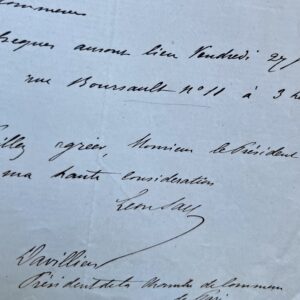 Commerce
obsèques auront lieu Vendredi 27
rue Boursault n° 11 à 3 h
Veuillez agréer, Monsieur le Président
ma haute considération
Léon Say
Davillier
Président de la Chambre de Commerce
de Paris